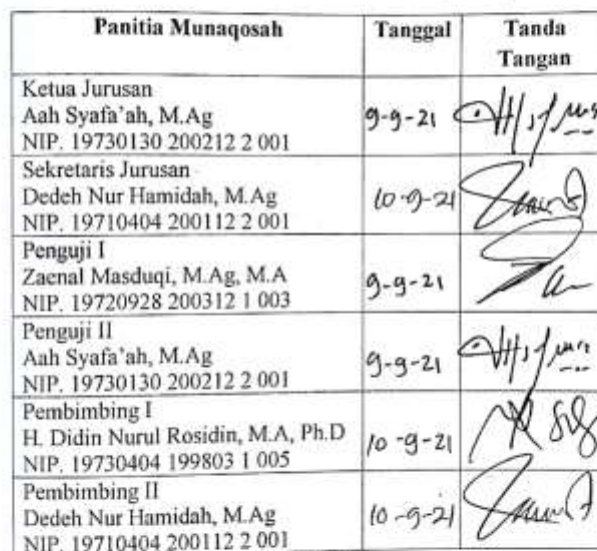 Panitia Munaqosah Tanggal Tanda
Tangan
Ketua Jurusan
Aah Syafa'ah, M.Ag 9-9-21
NIP. 19730130 200212 2 001
Sekretaris Jurusan
Dedeh Nur Hamidah, M.Ag 10-9-21
NIP. 19710404 200112 2 001
Penguji I
Zaenal Masduqi, M.Ag, M.A 9-9-21
NIP. 19720928 200312 1 003
Penguji II
Aah Syafa'ah, M.Ag 9-9-21
NIP. 19730130 200212 2 001
Pembimbing I
H. Didin Nurul Rosidin, M.A, Ph.D 10-9-21
NIP. 19730404 199803 1 005
Pembimbing II
Dedeh Nur Hamidah, M.Ag 10-9-21
NIP. 19710404 200112 2 001